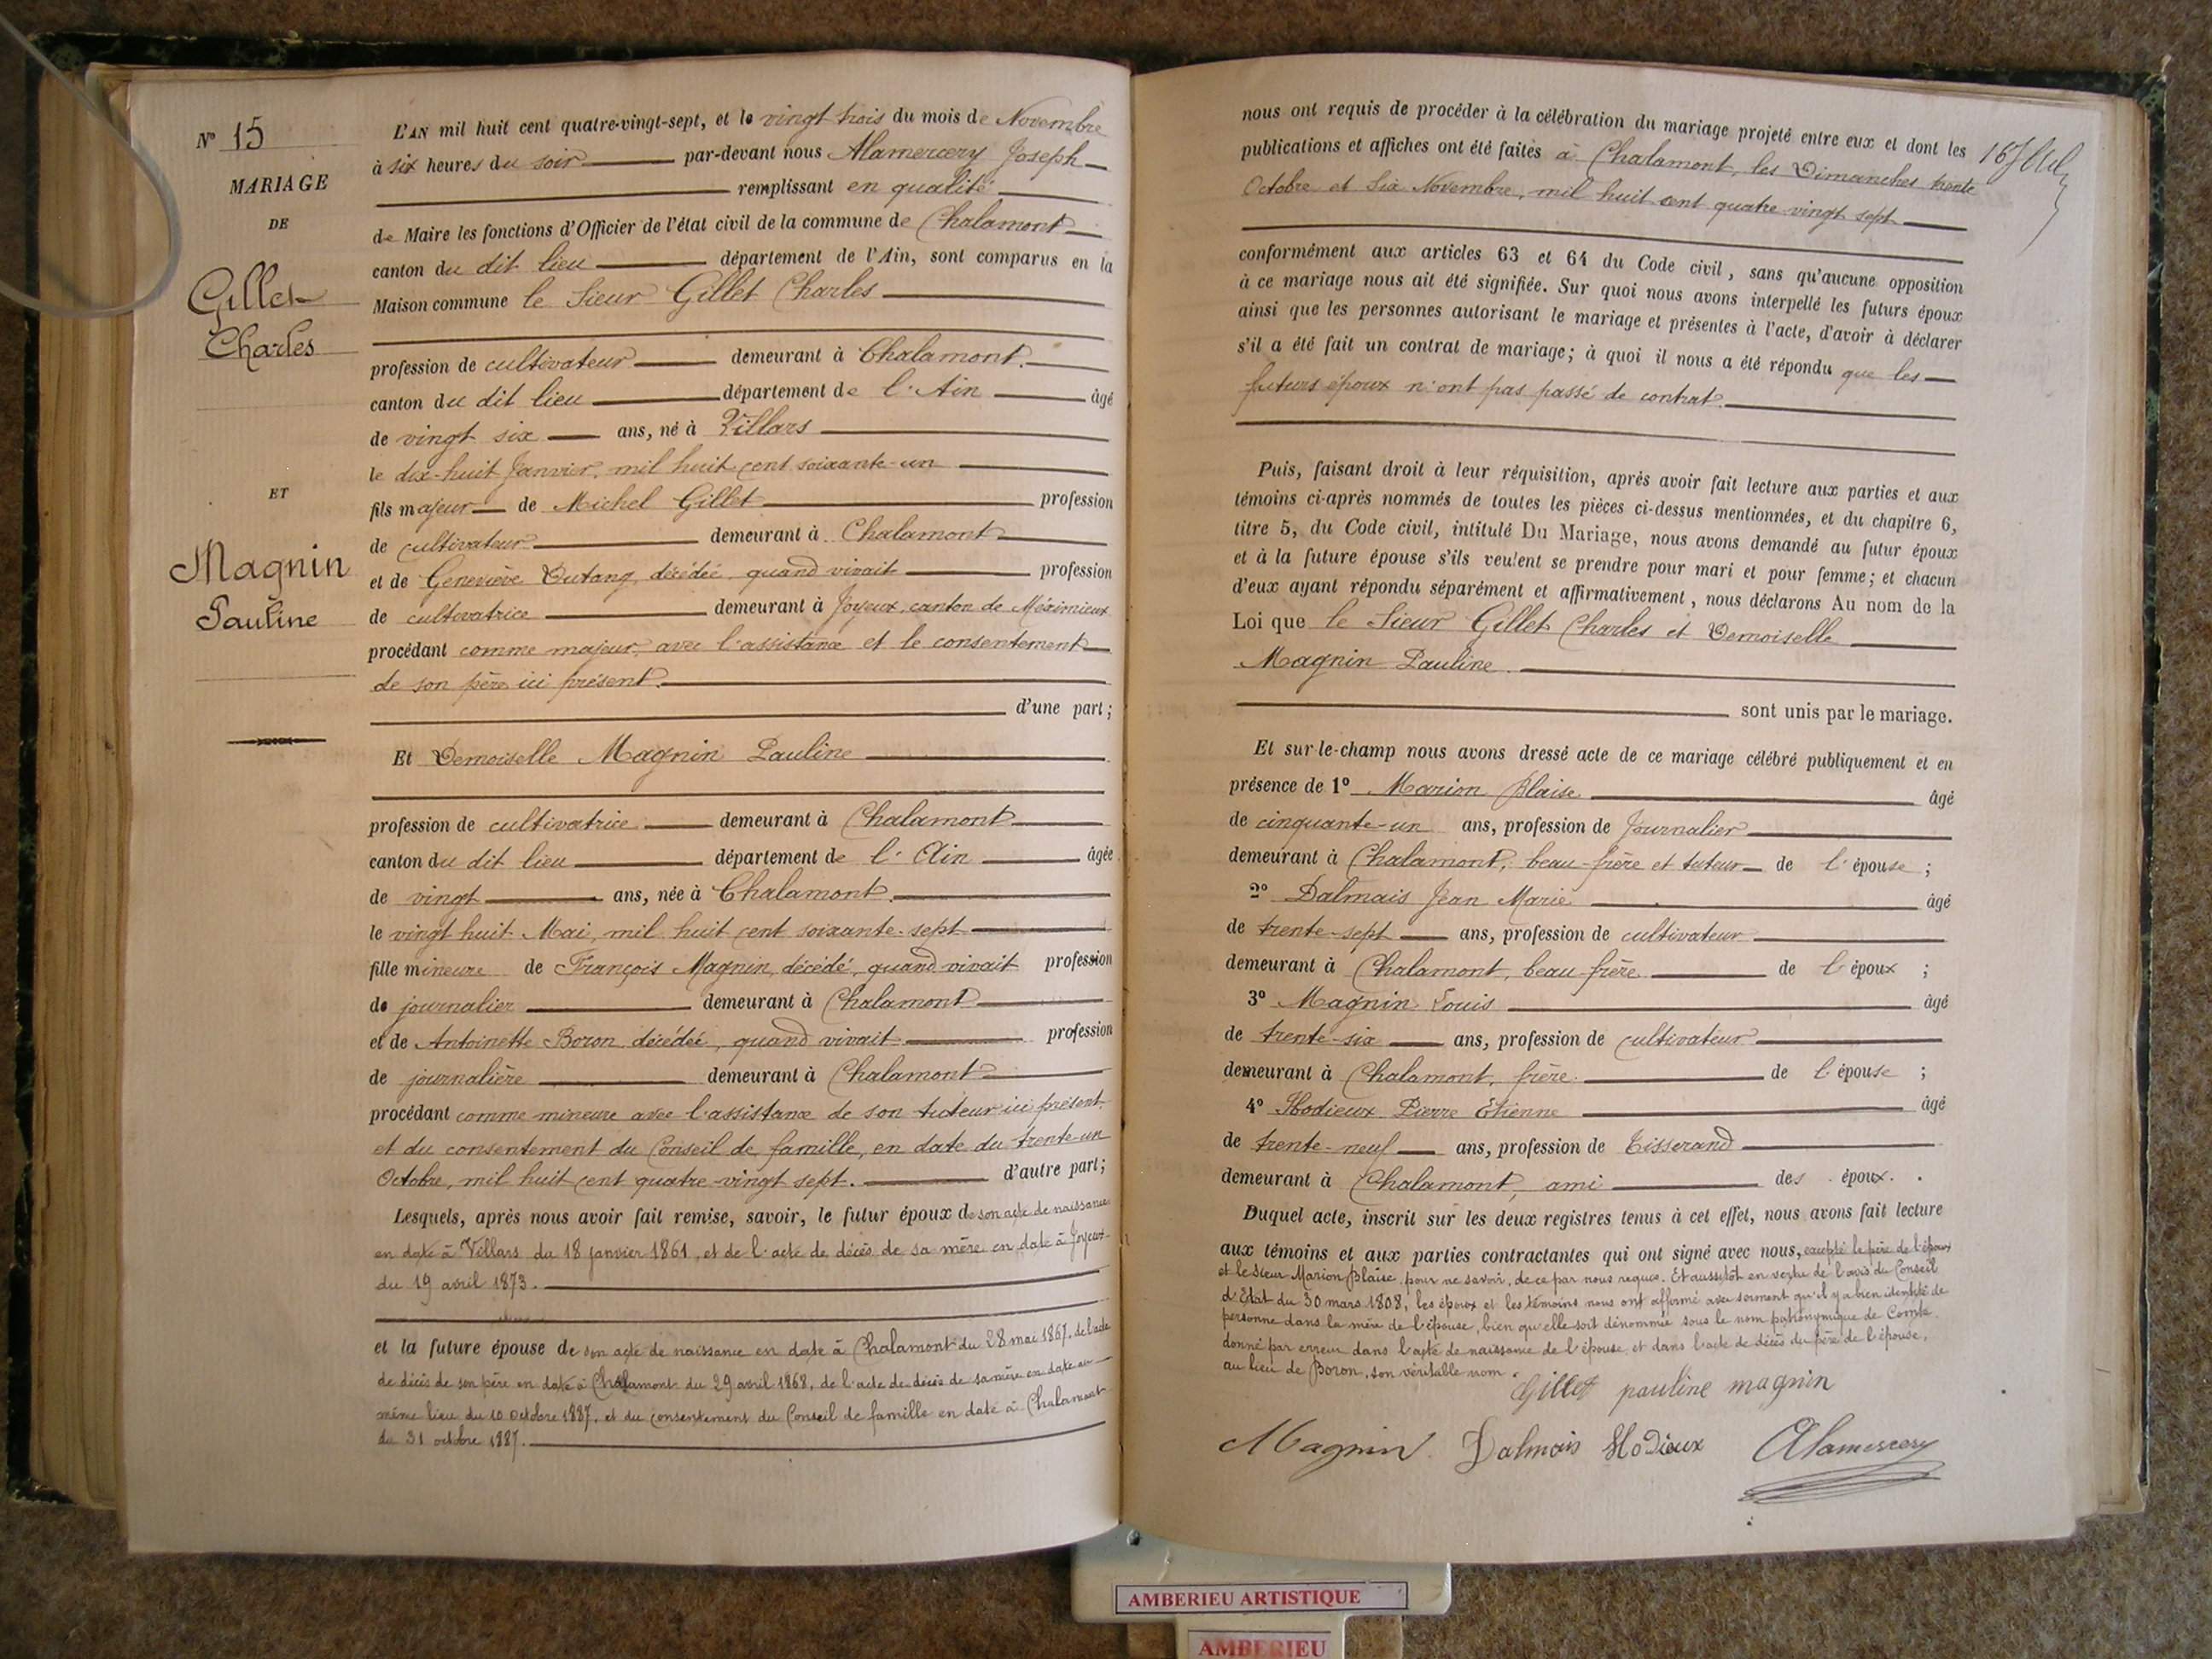 N° 15
MARIAGE
DE
Gillet
Charles
ET
Magnin
Pauline
L'AN mil huit cent quatre-vingt-sept, et le vingt trois du mois de Novembre
à six heures du soir par-devant nous Alamercery Joseph
remplissant en qualité
de Maire les fonctions d'Officier de l'état civil de la commune de Chalamont
canton du dit lieu département de l'Ain, sont comparus en la
Maison commune le Sieur Gillet Charles
profession de cultivateur demeurant à Chalamont.
canton du dit lieu département de l'Ain âgé
de vingt six ans, né à Villars
le dix-huit Janvier, mil huit cent soixante-un
fils majeur de Michel Gillet profession
de cultivateur demeurant à Chalamont
et de Geneviève Dutang, décédée, quand vivait profession
de cultivatrice demeurant à Joyeux, canton de Méximieux
procédant comme majeur, avec l'assistance et le consentement
de son père ici présent.
d'une part;
Et Demoiselle Magnin Pauline
profession de cultivatrice demeurant à Chalamont
canton du dit lieu département de l'Ain âgée
de vingt ans, née à Chalamont.
le vingt huit Mai, mil huit cent soixante-sept
fille mineure de François Magnin, décédé, quand vivait profession
de journalier demeurant à Chalamont
et de Antoinette Boron décédée, quand vivait profession
de journalière demeurant à Chalamont
procédant comme mineure avec l'assistance de son tuteur ici présent
et du consentement du Conseil de famille, en date du trente-un
Octobre, mil huit cent quatre-vingt sept. d'autre part;
Lesquels, après nous avoir fait remise, savoir, le futur époux de son acte de naissance
en date à Villars du 18 janvier 1861, et de l'acte de décès de sa mère en date à Joyeux
du 19 avril 1873.
et la future épouse de son acte de naissance en date à Chalamont du 28 mai 1867, de l'acte
de décès de son père en date à Chalamont du 29 avril 1868, de l'acte de décès de sa mère en date au
même lieu du 10 octobre 1887, et du consentement du Conseil de famille en date à Chalamont
du 31 octobre 1887.
nous ont requis de procéder à la célébration du mariage projeté entre eux et dont les
publications et affiches ont été faites à Chalamont, les Dimanches trente
Octobre et Six Novembre, mil huit cent quatre vingt sept
conformément aux articles 63 et 64 du Code civil, sans qu'aucune opposition
à ce mariage nous ait été signifiée. Sur quoi nous avons interpellé les futurs époux
ainsi que les personnes autorisant le mariage et présentes à l'acte, d'avoir à déclarer
s'il a été fait un contrat de mariage; à quoi il nous a été répondu que les
futurs époux n'ont pas passé de contrat.
Puis, faisant droit à leur réquisition, après avoir fait lecture aux parties et aux
témoins ci-après nommés de toutes les pièces ci-dessus mentionnées, et du chapitre 6,
titre 5, du Code civil, intitulé Du Mariage, nous avons demandé au futur époux
et à la future épouse s'ils veulent se prendre pour mari et pour femme; et chacun
d'eux ayant répondu séparément et affirmativement, nous déclarons Au nom de la
Loi que le Sieur Gillet Charles et Demoiselle
Magnin Pauline.
sont unis par le mariage.
Et sur-le-champ nous avons dressé acte de ce mariage célébré publiquement et en
présence de 1° Marion Blaise âgé
de cinquante-un ans, profession de Journalier
demeurant à Chalamont, beau-frère et tuteur de l'épouse;
2° Dalmais Jean Marie âgé
de trente-sept ans, profession de cultivateur
demeurant à Chalamont, beau frère de l'époux;
3° Magnin Louis âgé
de trente-six ans, profession de cultivateur
demeurant à Chalamont, frère de l'épouse;
4° Hodieux Pierre Etienne âgé
de trente-neuf ans, profession de Tisserand
demeurant à Chalamont, ami des époux.
Duquel acte, inscrit sur les deux registres tenus à cet effet, nous avons fait lecture
aux témoins et aux parties contractantes qui ont signé avec nous, excepté le père de l'époux
et le Sieur Marion Blaise, pour ne savoir, de ce par nous requis. Et aussitôt en vertu de l'avis du Conseil
d'Etat du 30 mars 1808, les époux et les témoins nous ont affirmé avec serment qu'il y a bien identité de
personne dans la mère de l'épouse, bien qu'elle soit dénommée sous le nom patronymique de Comte
donné par erreur dans l'acte de naissance de l'épouse et dans l'acte de décès du père de l'épouse,
au lieu de Boron, son véritable nom.
Gillet pauline magnin
Magnin Dalmais Hodieux Alamercery
AMBERIEU ARTISTIQUE
AMBERIEU